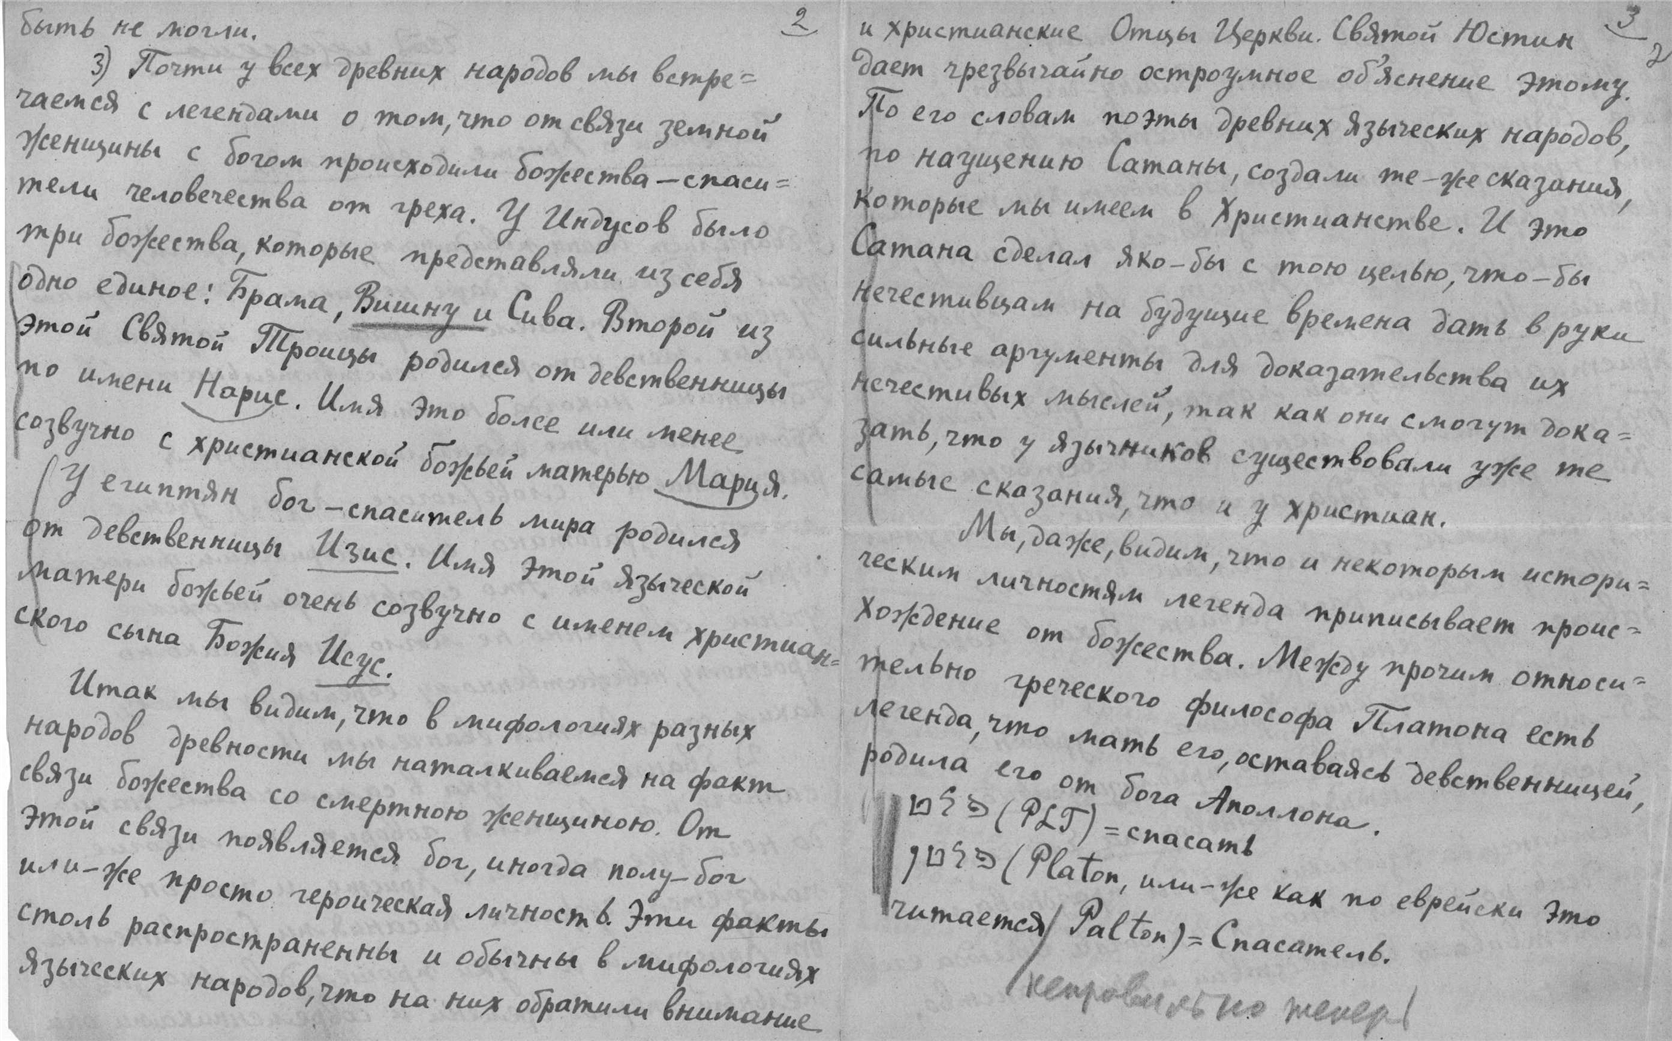 2
быть не могли.
3) Почти у всех древних народов мы встре=
чаемся с легендами о том, что от связи земной
женщины с богом происходили божества – спаси=
тели человечества от греха. У Индусов было
три божества, которые представляли из себя
одно единое: Брама, Вишну и Сива. Второй из
этой Святой Троицы родился от девственницы
по имени Нарис. Имя это более или менее
созвучно с христианской божьей матерью Мария.
У египтян бог – спаситель мира родился
от девственницы Изис. Имя этой языческой
матери божьей очень созвучно с именем христиан=
ского сына Божия Исус.
Итак мы видим, что в мифологиях разных
народов древности мы наталкиваемся на факт
связи божества со смертною женщиною. От
этой связи появляется бог, иногда полу-бог
или-же просто героическая личность. Эти факты
столь распространенны и обычны в мифологиях
языческих народов, что на них обратили внимание
3
2
и христианские Отцы Церкви. Святой Юстин
дает чрезвычайно остроумное об'яснение этому.
По его словам поэты древних языческих народов,
по наущению Сатаны, создали те-же сказания,
которые мы имеем в Христианстве. И это
Сатана сделал яко-бы с тою целью, что-бы
нечестивцам на будущие времена дать в руки
сильные аргументы для доказательства их
нечестивых мыслей, так как они смогут дока=
зать, что у язычников существовали уже те
самые сказания, что и у христиан.
Мы, даже, видим, что и некоторым истори=
ческим личностям легенда приписывает проис=
хождение от божества. Между прочим относи=
тельно греческого философа Платона есть
легенда, что мать его, оставаясь девственницей,
родила его от бога Аполлона.
פלט (PLT) = спасать
פלטן (Platon, или-же как по еврейски это
читается Palton) = Спасатель.
неправильно теперь